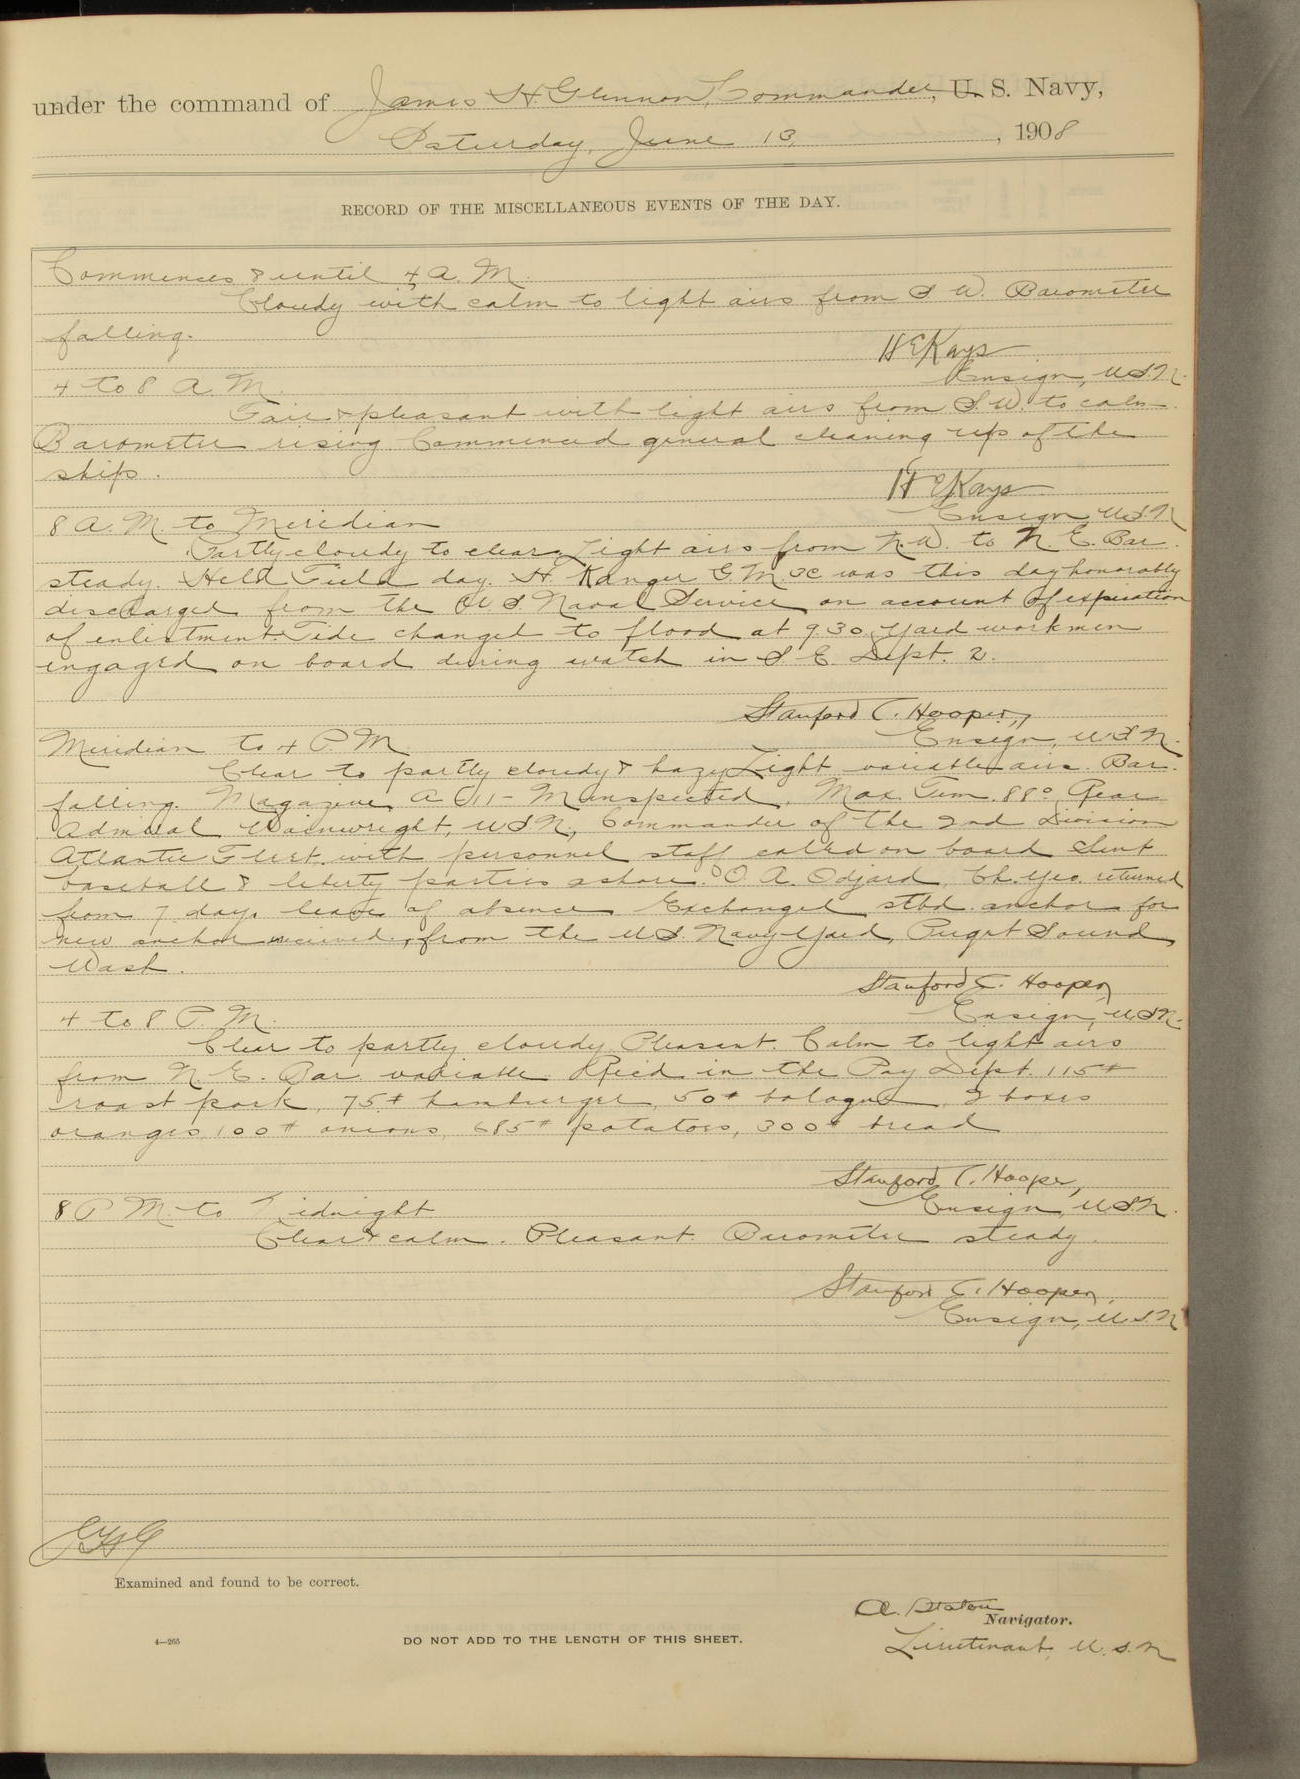 under the command of James H. Glennon, Commander, U. S. Navy,
Saturday, June 13, 1908
RECORD OF THE MISCELLANEOUS EVENTS OF THE DAY.
Commences & until 4 A. M.
Cloudy with calm to light airs from S W. Barometer
falling.
H E Kays
Ensign, U.S.N.
4 to 8 A. M.
Fair & pleasant with light airs from S. W. to calm
Barometer rising Commenced general cleaning up of the
ship.
H E Kays
Ensign U.S.N
8 A. M. to Meridian
Partly cloudy to clear. Light airs from N. W. to N E. Bar.
steady. Held Field day. H. G. M. 3c was this day honorably
discharged from the U.S. Naval Service on account of expiration
of enlistment. Tide changed to flood at 9 30. Yard workmen
engaged on board during watch in S. E. Dept. 2.
Stanford C. Hooper,
Ensign, U.S.N.
Meridian to 4 P. M
Clear to partly cloudy & hazy. Light variable airs. Bar.
falling. Magazines A 011-M inspected. Max. Tem. 88° Rear
Admiral Wainwright, U.S.N., Commander of the 2nd Division
Atlantic Fleet. with personnel staff called on board Sent
baseball & liberty parties ashore. O. A. Odjard, Ch. Yeo. returned
from 7 days leave of absence Exchanged stbd. anchor for
new anchor received from the U.S. Navy Yard, Puget Sound,
Wash.
Stanford C. Hooper,
Ensign, U.S.N.
4 to 8 P. M.
Clear to partly cloudy. Pleasant. Calm to light airs
from N. E. Bar. variable. Rec'd in the Pay Dept. 115#
roast pork, 75# hamburger, 50# bologna, 2 boxes
oranges, 100# onions, 685# potatoes, 300# bread
Stanford C. Hooper,
Ensign, U.S.N.
8 P. M. to Midnight
Clear & calm. Pleasant. Barometer steady.
Stanford C. Hooper,
Ensign, U.S.N
JHG
Examined and found to be correct.
Navigator.
4—265
DO NOT ADD TO THE LENGTH OF THIS SHEET.
Lieutenant, U.S.N